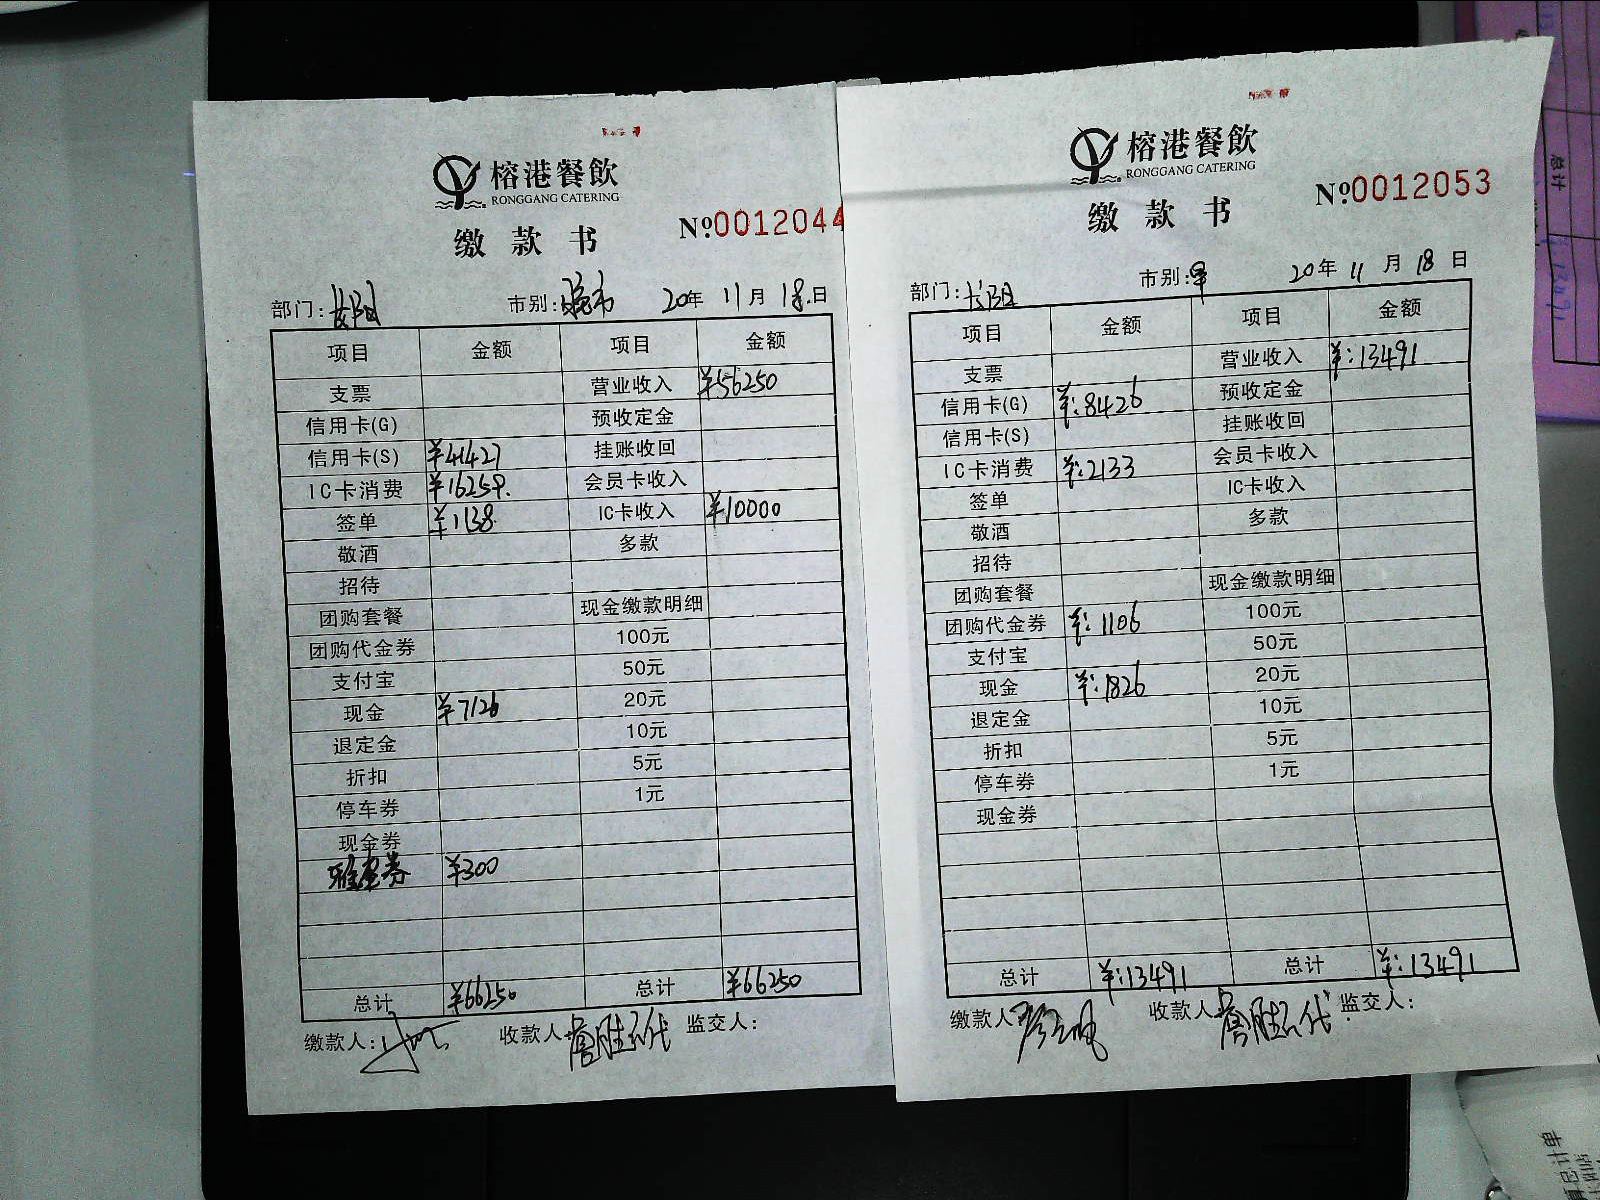 榕港餐飲
RONGGANG CATERING
缴款书
№0012044
部门: 市别:晚市 20年 11月 18日
项目 金额 项目 金额
支票 营业收入 ¥56250
信用卡(G) 预收定金
信用卡(S) ¥41427 挂账收回
IC卡消费 ¥16259. 会员卡收入
签单 ¥1138 IC卡收入 ¥10000
敬酒 多款
招待
团购套餐 现金缴款明细
团购代金券 100元
支付宝 50元
现金 ¥7126 20元
退定金 10元
折扣 5元
停车券 1元
现金券
¥300
总计 ¥66250 总计 ¥66250
缴款人: 收款人: 监交人:
榕港餐飲
RONGGANG CATERING
缴款书
№0012053
部门:长阳 市别:早 20年 11月 18日
项目 金额 项目 金额
支票 营业收入 ¥:13491
信用卡(G) ¥:8426 预收定金
信用卡(S) 挂账收回
IC卡消费 ¥:2133 会员卡收入
签单 IC卡收入
敬酒 多款
招待
团购套餐 现金缴款明细
团购代金券 ¥:1106 100元
支付宝 50元
现金 ¥:1826 20元
退定金 10元
折扣 5元
停车券 1元
现金券
总计 ¥:13491 总计 ¥:13491
缴款人 收款人 监交人:
总计